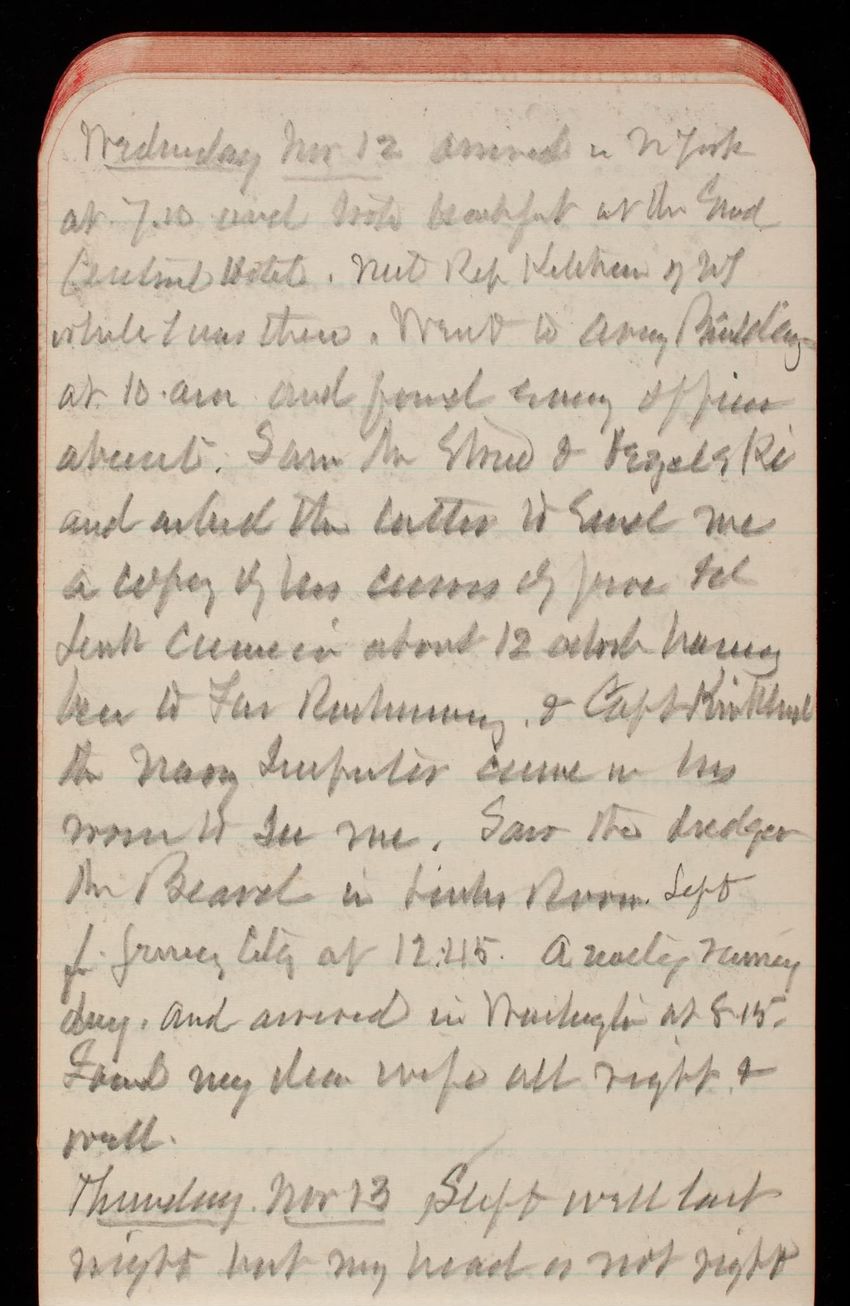 Wednesday Nov 12 arrived in N York
at 7.10 and took breakfast at the Grand
Central Hotel. Met Rep Ketcham of NY
while I was there. Went to Army Building
at 10 am and found every officer
absent. Saw the &
and asked the latter to send me
a copy of his of
came in about 12 oclock having
been to Far Rockaway, & Capt
the Navy Inspector came in his
room to see me. Saw the dredger
the Board in Room. Left
f. Jersey City at 12:45. A rainy
day. and arrived in Washington at 8.15.
Found my dear wife all right &
well.
Thursday. Nov 13 Slept well last
night but my head is not right